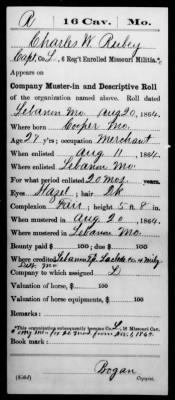 R | 16 Cav. | Mo.
Charles W. Ruby
Capt. Co. L, 6 Reg't Enrolled Missouri Militia.*
Appears on
Company Muster-in and Descriptive Roll
of the organization named above. Roll dated
Lebanon Mo Aug 20, 1864.
Where born Cooper Mo.
Age 27 y'rs; occupation Merchant
When enlisted Aug 11, 1864.
Where enlisted Lebanon Mo.
For what period enlisted 20 mos.
Eyes Hazel; hair Dk
Complexion Fair; height 5 ft. 8 in.
When mustered in Aug 20, 1864.
Where mustered in Lebanon Mo
Bounty paid $ 100; due $ 100
Where credited Lebanon Tp. Laclede Co
Company to which assigned L
Valuation of horse, $ 100
Valuation of horse equipments, $ 100
Remarks:
*This organization subsequently became Co. L, 16 Missouri Cav.
Book mark:
Bogan
Copyist.